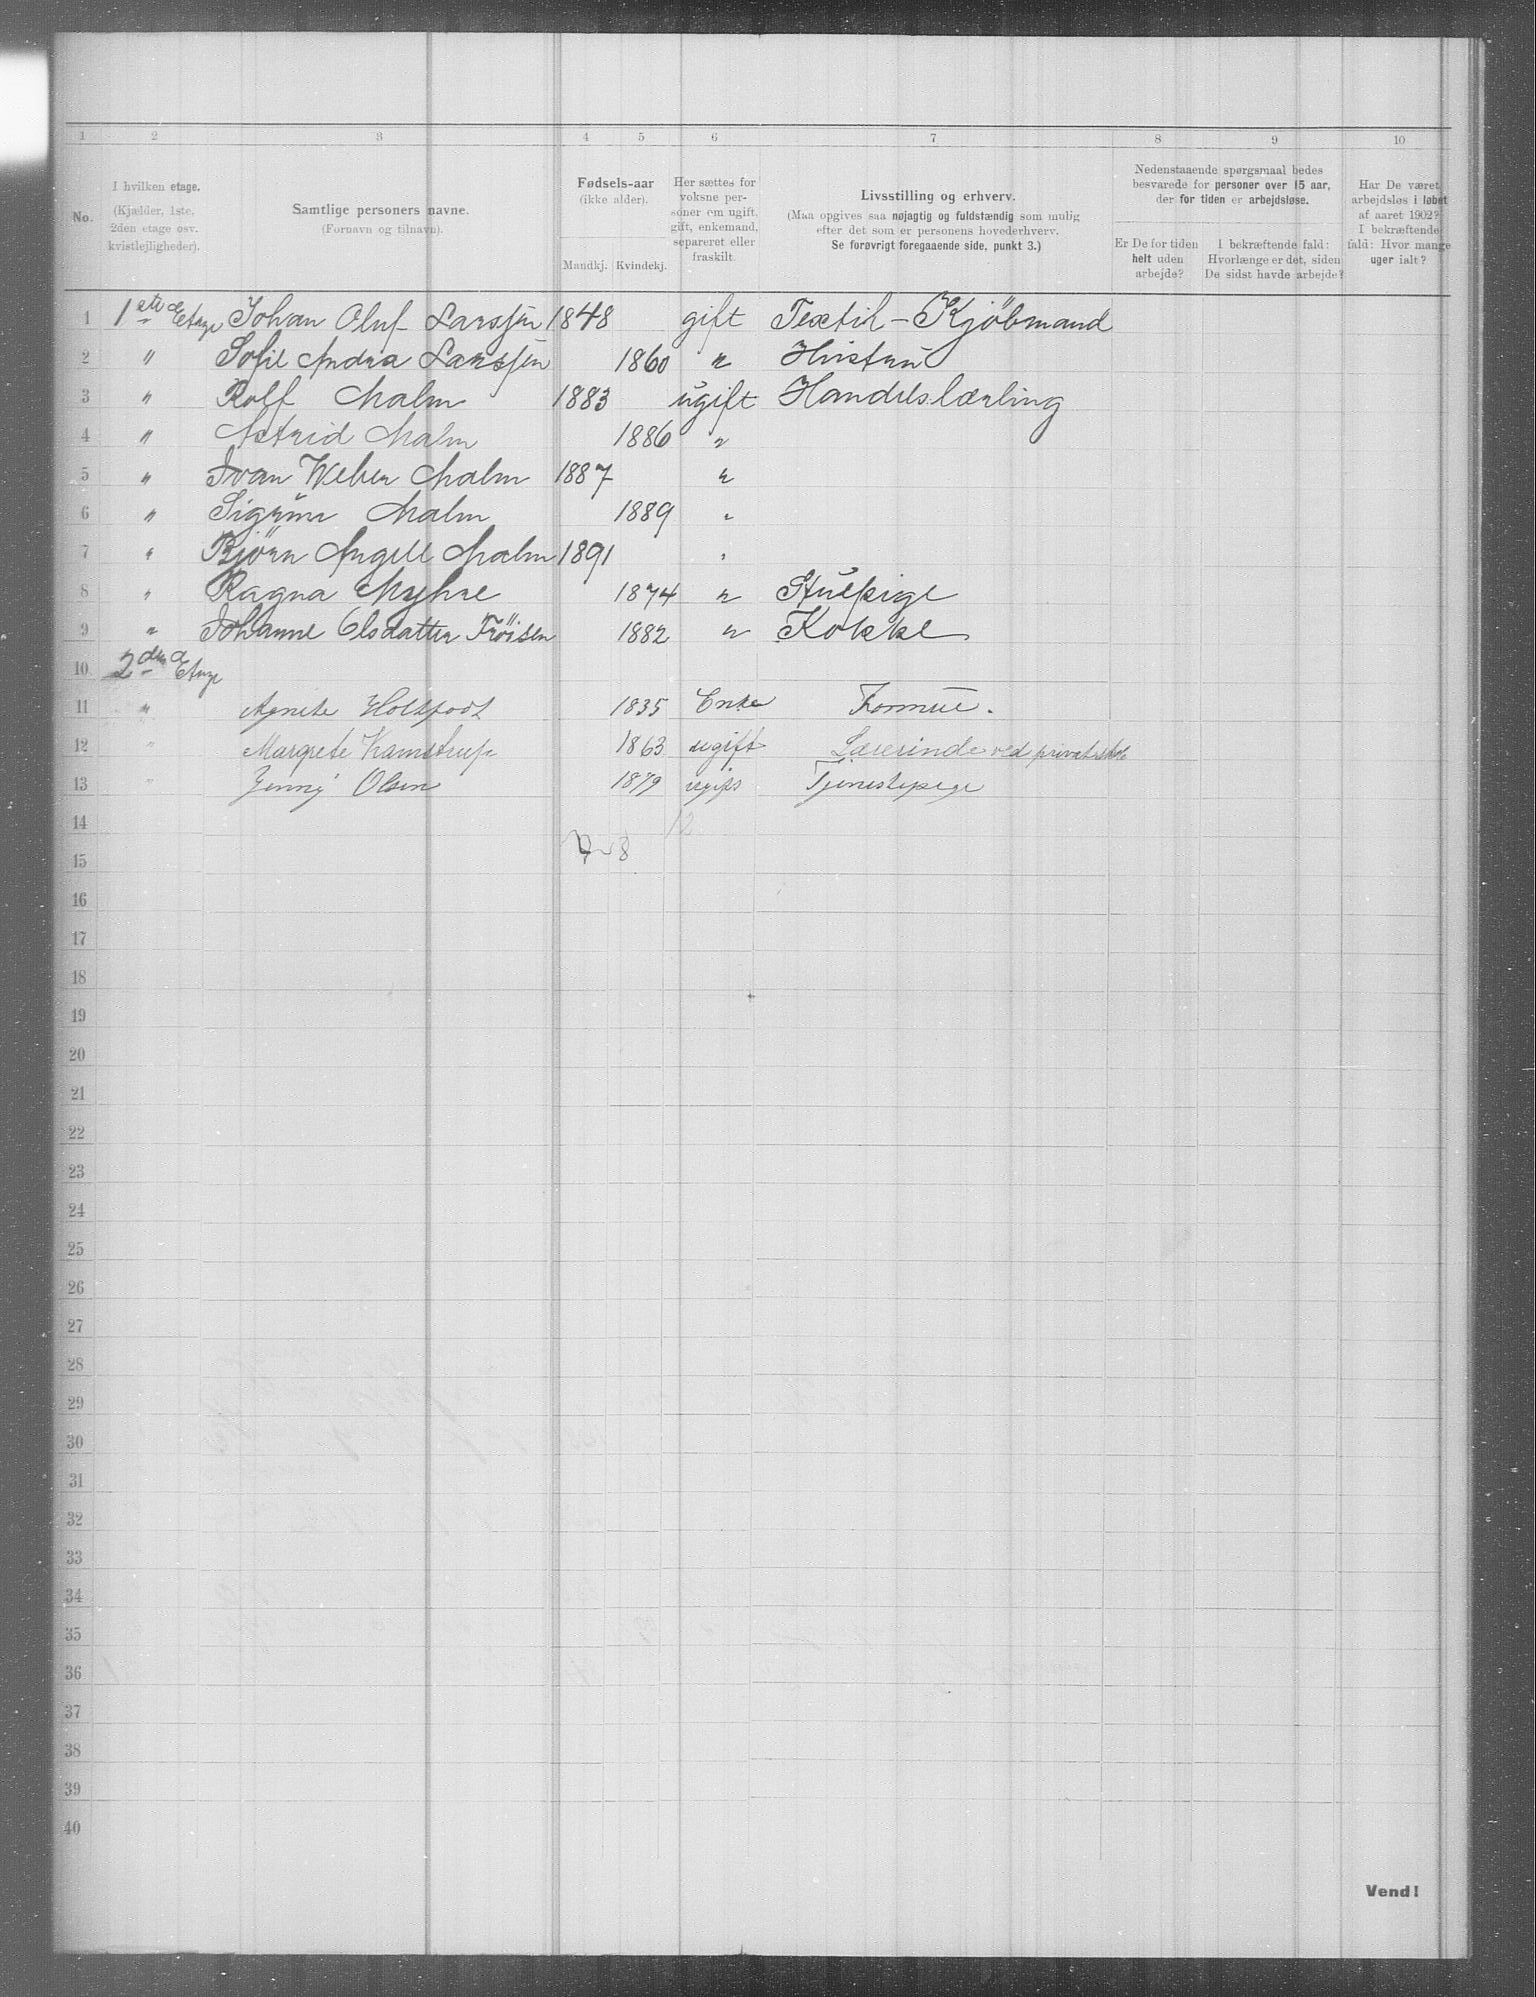 1 2 3 4 5 6 7 8 9 10
No.
I hvilken etage.
(Kjælder, 1ste,
2den etage osv.
kvistlejligheder).
Samtlige personers navne.
(Fornavn og tilnavn).
Fødsels-aar
(ikke alder).
Mandkj. Kvindekj.
Her sættes for
voksne per-
soner om ugift,
gift, enkemand,
separeret eller
fraskilt.
Livsstilling og erhverv.
(Maa opgives saa nøjagtig og fuldstændig som mulig
efter det som er personens hovederhverv.
Se forøvrigt foregaaende side, punkt 3.)
Nedenstaaende spørgsmaal bedes
besvarede for personer over 15 aar,
der for tiden er arbejdsløse.
Er De for tiden
helt uden
arbejde?
I bekræftende fald:
Hvorlænge er det, siden
De sidst havde arbejde?
Har De været
arbejdsløs i løbet
af aaret 1902?
I bekræftende
fald: Hvor mange
uger ialt?
1 1ste Etage Johan Oluf Larssen 1848 gift Textil-Kjöbmand
2 " Sofie Andrea Larssen 1860 " Hustru
3 " Rolf Malm 1883 ugift Handelslærling
4 " Astrid Malm 1886 "
5 " Ivan Weber Malm 1887 "
6 " Sigrun Malm 1889 "
7 " Bjørn Angell Malm 1891 "
8 " Ragna Myhre 1874 " Stuepige
9 " Johanne Olsdatter Fröisen 1882 " Kokke
10 2den Etage
11 " Agnete 1835 Enke Formue.
12 " Margrete Kamstrup 1863 ugift Lærerinde ved privatskole
13 " Jenny Olsen 1879 ugift Tjenestepige
14 12
15
16
17
18
19
20
21
22
23
24
25
26
27
28
29
30
31
32
33
34
35
36
37
38
39
40
Vend!